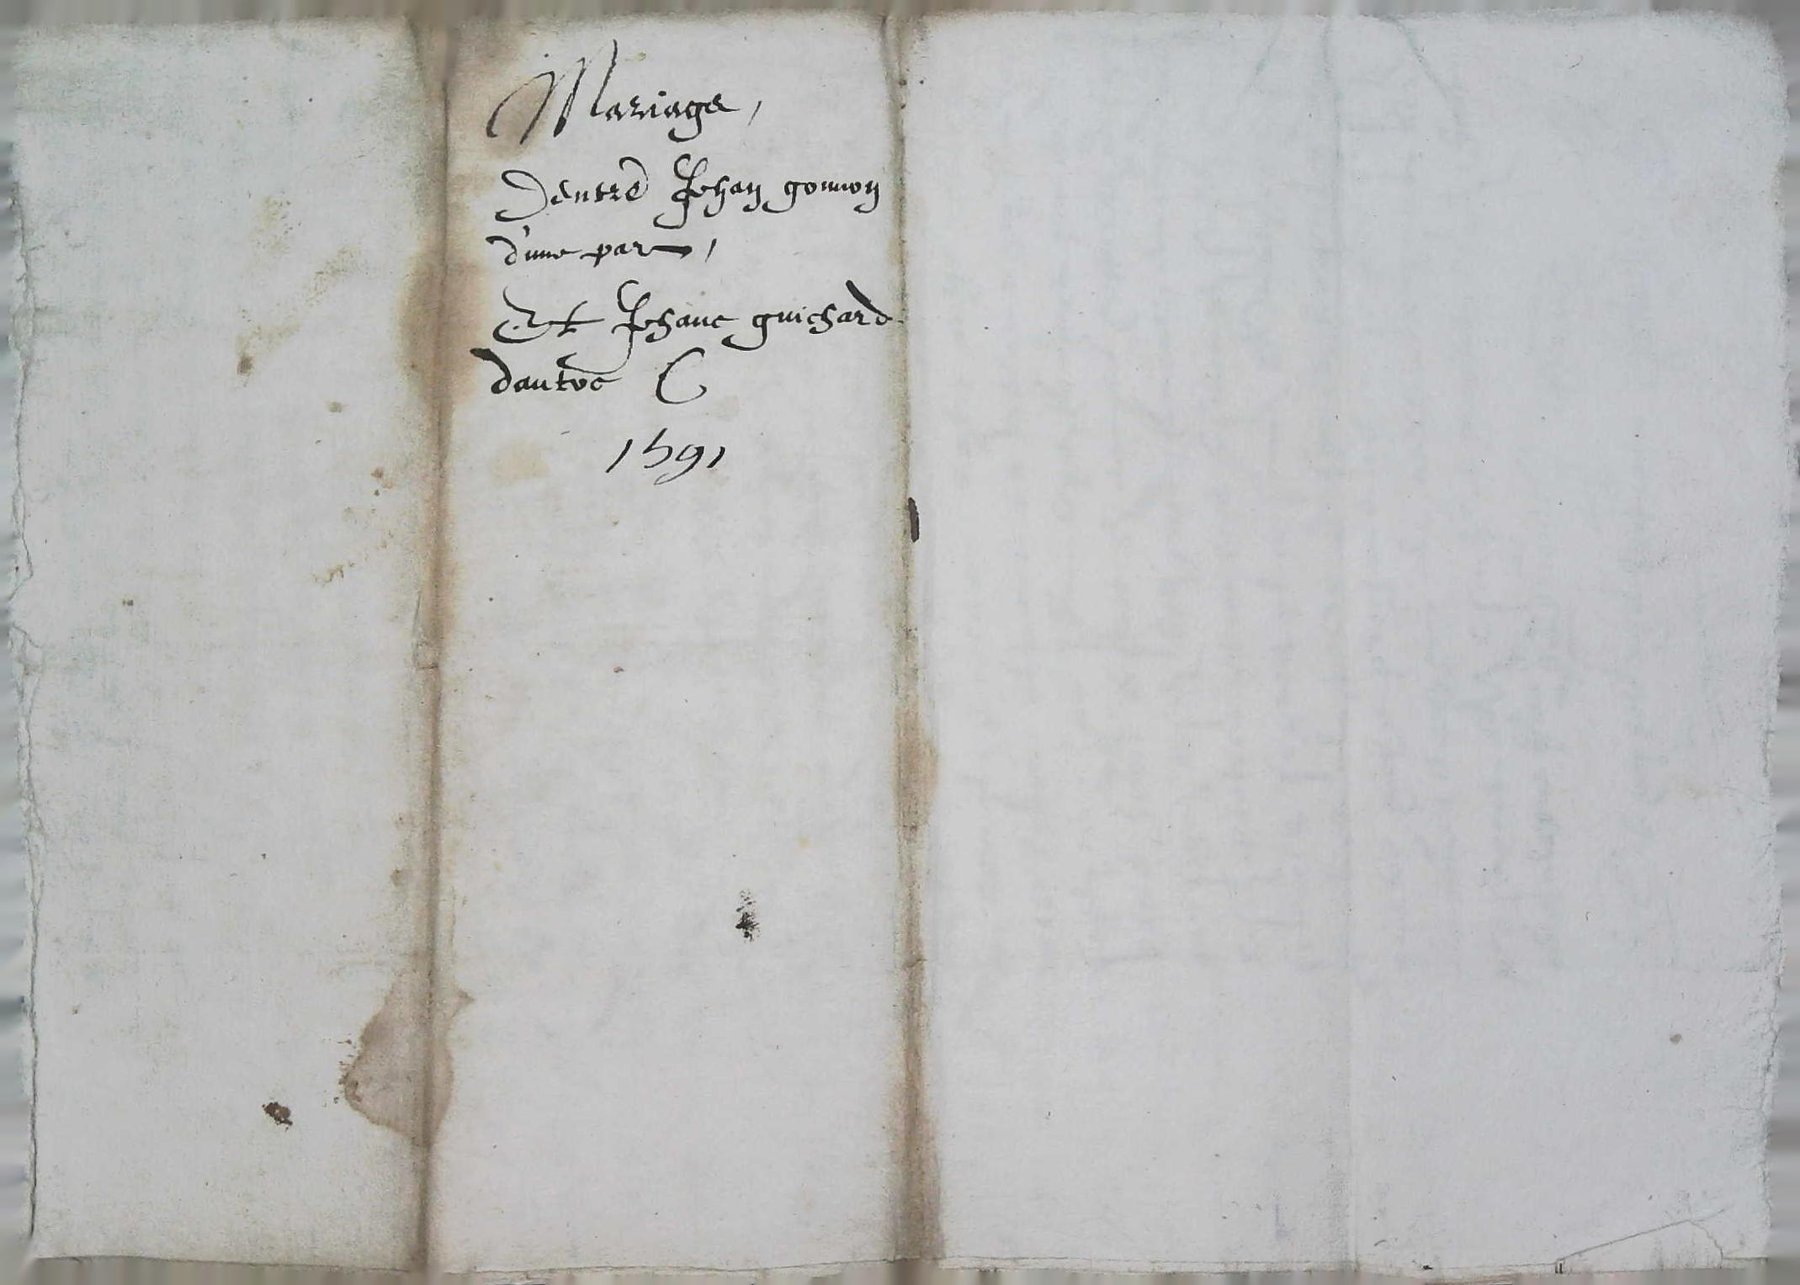 Mariage,
Dentre Jehan gonnon
d'une part,
Et Jehane guichard
dautre
1591